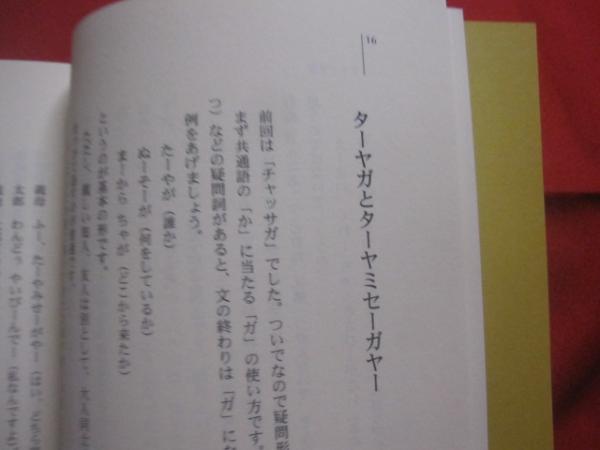 16
ターヤガとターヤミセーガヤー
前回は「チャッサガ」でした。ついでなので疑問形
まず共通語の「か」に当たる「ガ」の使い方です。
つ）などの疑問詞があると、文の終わりは「ガ」にな
例をあげましょう。
たーやが（誰か）
ぬーそーが（何をしているか）
まーから ちゃが（どこから来たか）
というのが基本の形です。
ただし、親しい知人、友人は別として、大人同士
義母 ふー、たーやみせーがやー（はい、どちら
太郎 わんどぅ やいびーんでー（私なんですよ）